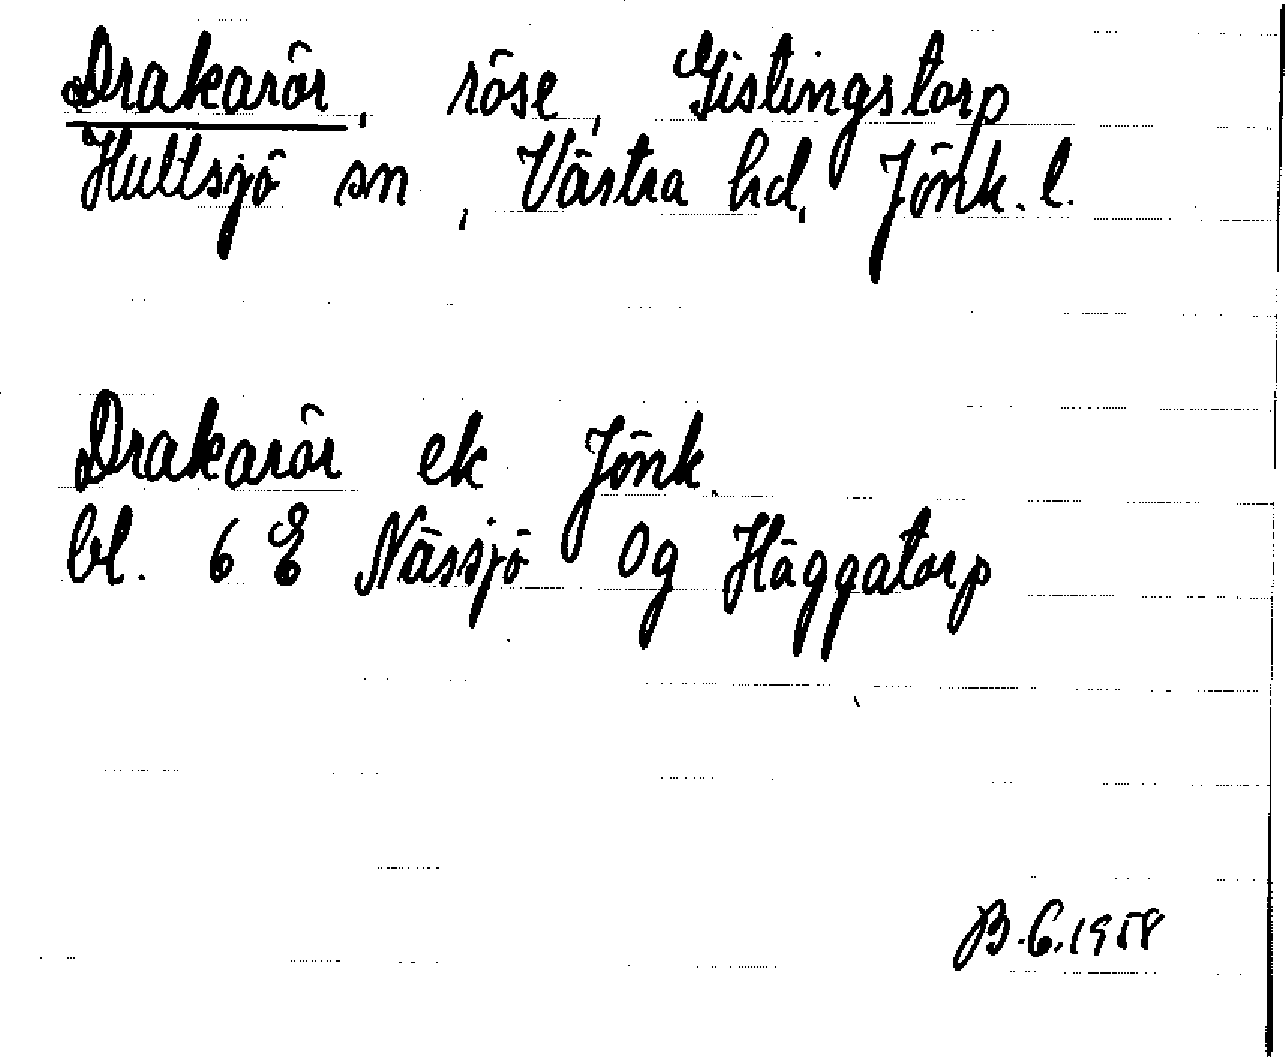 Drakarör, röse, Gistingstorp
Hultsjö sn, Västra hd, Jönk. l.
Drakarör ek Jönk.
bl. 6 E Nässjö Og Häggatorp
B.C. 1958